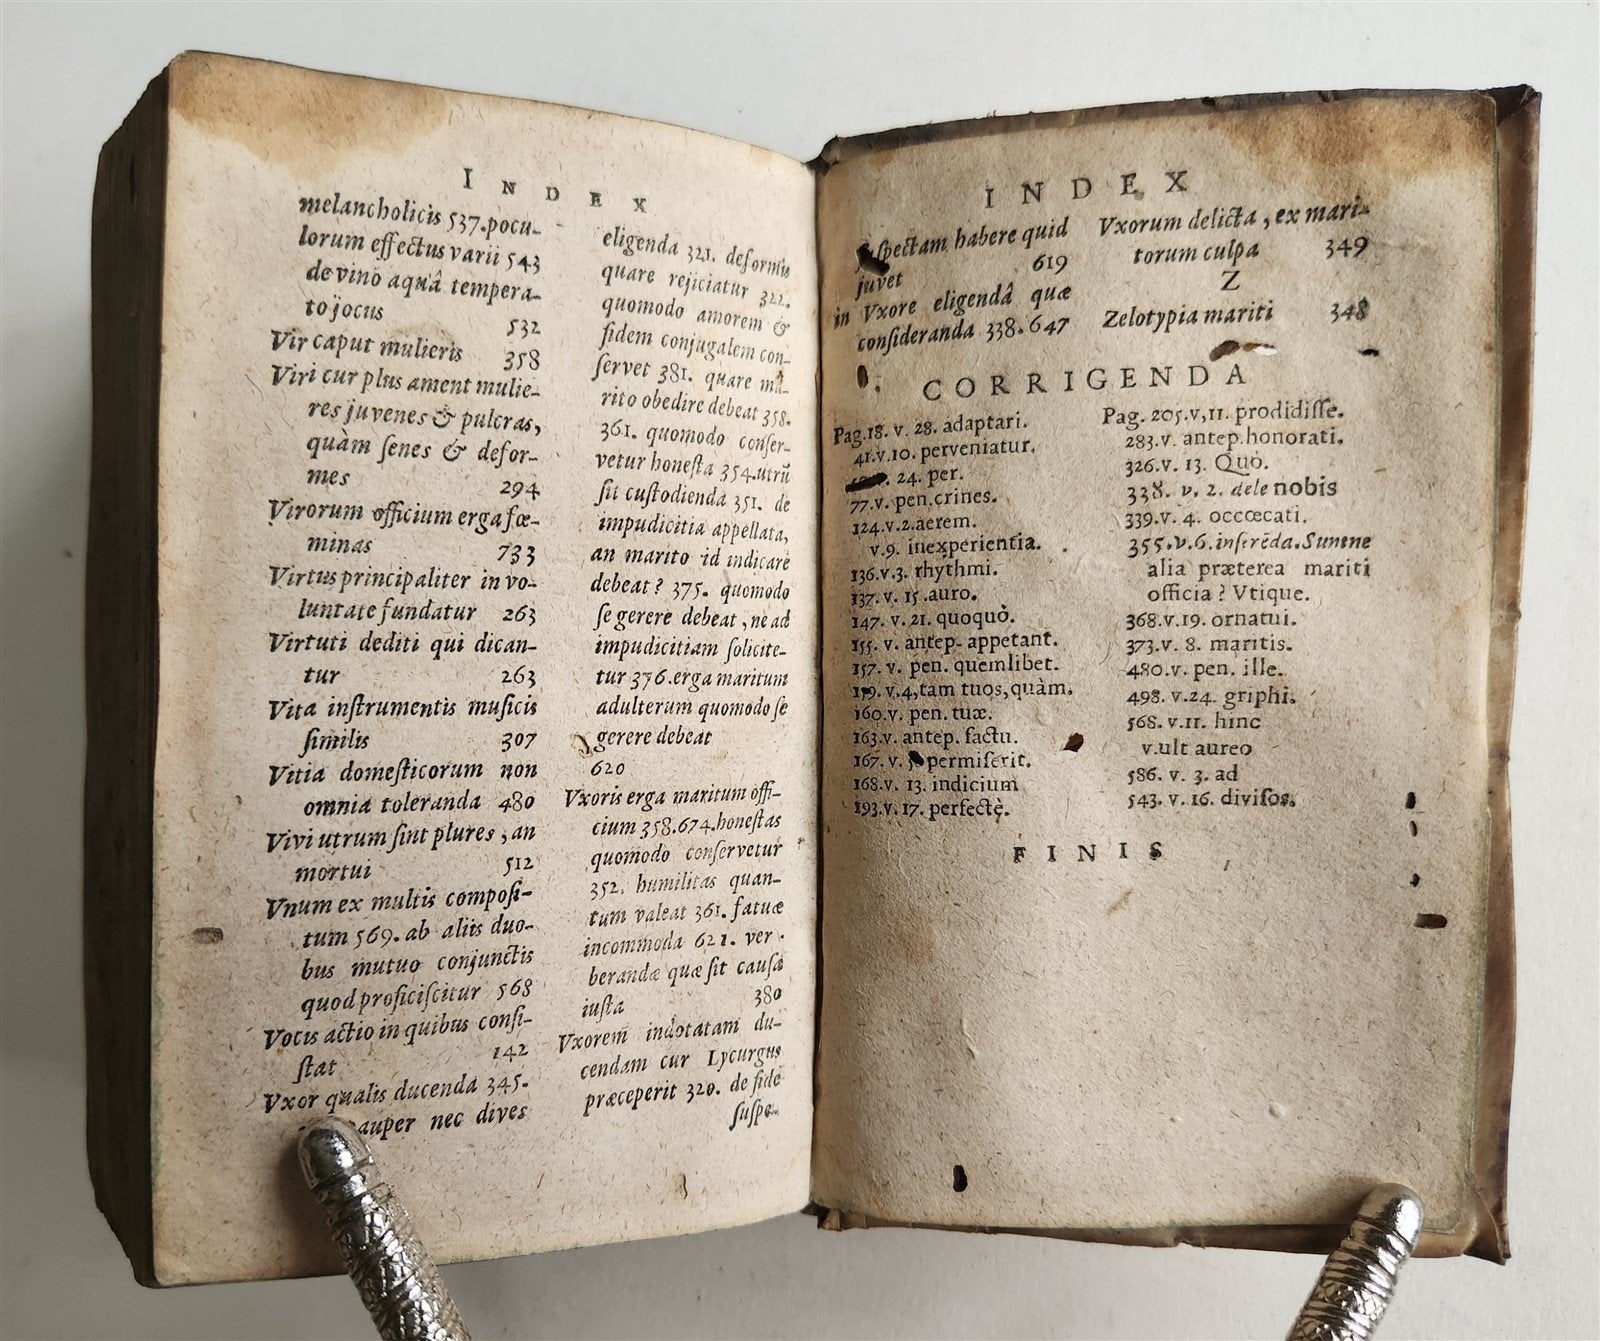 INDEX
melancholicis 537. pocu-
lorum effectus varii 543
de vino aquâ tempera-
to jocus 532
Vir caput mulieris 358
Viri cur plus ament mulie-
res juvenes & pulcras,
quàm senes & defor-
mes 294
Virorum officium erga fœ-
minas 733
Virtus principaliter in vo-
luntate fundatur 263
Virtuti dediti qui dican-
tur 263
Vita instrumentis musicis
similis 307
Vitia domesticorum non
omnia toleranda 480
Vivi utrum sint plures, an
mortui 512
Vnum ex multis composi-
tum 569. ab aliis duo-
bus mutuo conjunctis
quod proficiscitur 568
Vocis actio in quibus consi-
stat 142
Vxor qualis ducenda 345.
pauper nec dives
eligenda 321. deformis
quare rejiciatur 322.
quomodo amorem &
fidem conjugalem con-
servet 381. quare ma-
rito obedire debeat 358.
361. quomodo conser-
vetur honesta 354. utrū
sit custodienda 351. de
impudicitia appellata,
an marito id indicare
debeat? 375. quomodo
se gerere debeat, ne ad
impudicitiam solicite-
tur 376. erga maritum
adulterum quomodo se
gerere debeat
620
Vxoris erga maritum offi-
cium 358.674. honestas
quomodo conservetur
352. humilitas quan-
tum valeat 361. fatuæ
incommoda 621. ver-
berandæ quæ sit causa
iusta 380
Vxorem indotatam du-
cendam cur Lycurgus
præceperit 320. de fide
suspe-
INDEX
suspectam habere quid
juvet 619
in Vxore eligendâ quæ
consideranda 338.647
Vxorum delicta, ex mari-
torum culpa 349
Z
Zelotypia mariti 348
CORRIGENDA
Pag.18. v. 28. adaptari.
41.v.10. perveniatur.
24. per.
77.v. pen.crines.
124.v.2.aerem.
v.9. inexperientia.
136.v.3. rhythmi.
137. v. 15.auro.
147. v. 21. quoquò.
155. v. antep. appetant.
157. v. pen. quemlibet.
159. v.4, tam tuos, quàm.
160.v. pen. tuæ.
163.v. antep. factu.
167. v. permiserit.
168.v. 13. indicium
193.v. 17. perfectè.
Pag. 205.v,11. prodidisse.
283.v. antep.honorati.
326.v. 13. Quò.
338. v. 2. dele nobis
339.v. 4. occœcati.
355.v.6. inserēda. Suntne
alia præterea mariti
officia? Vtique.
368.v.19. ornatui.
373.v. 8. maritis.
480.v. pen. ille.
498. v.24. griphi.
568. v.11. hinc
v.ult aureo
586. v. 3. ad
543. v. 16. divisos.
FINIS